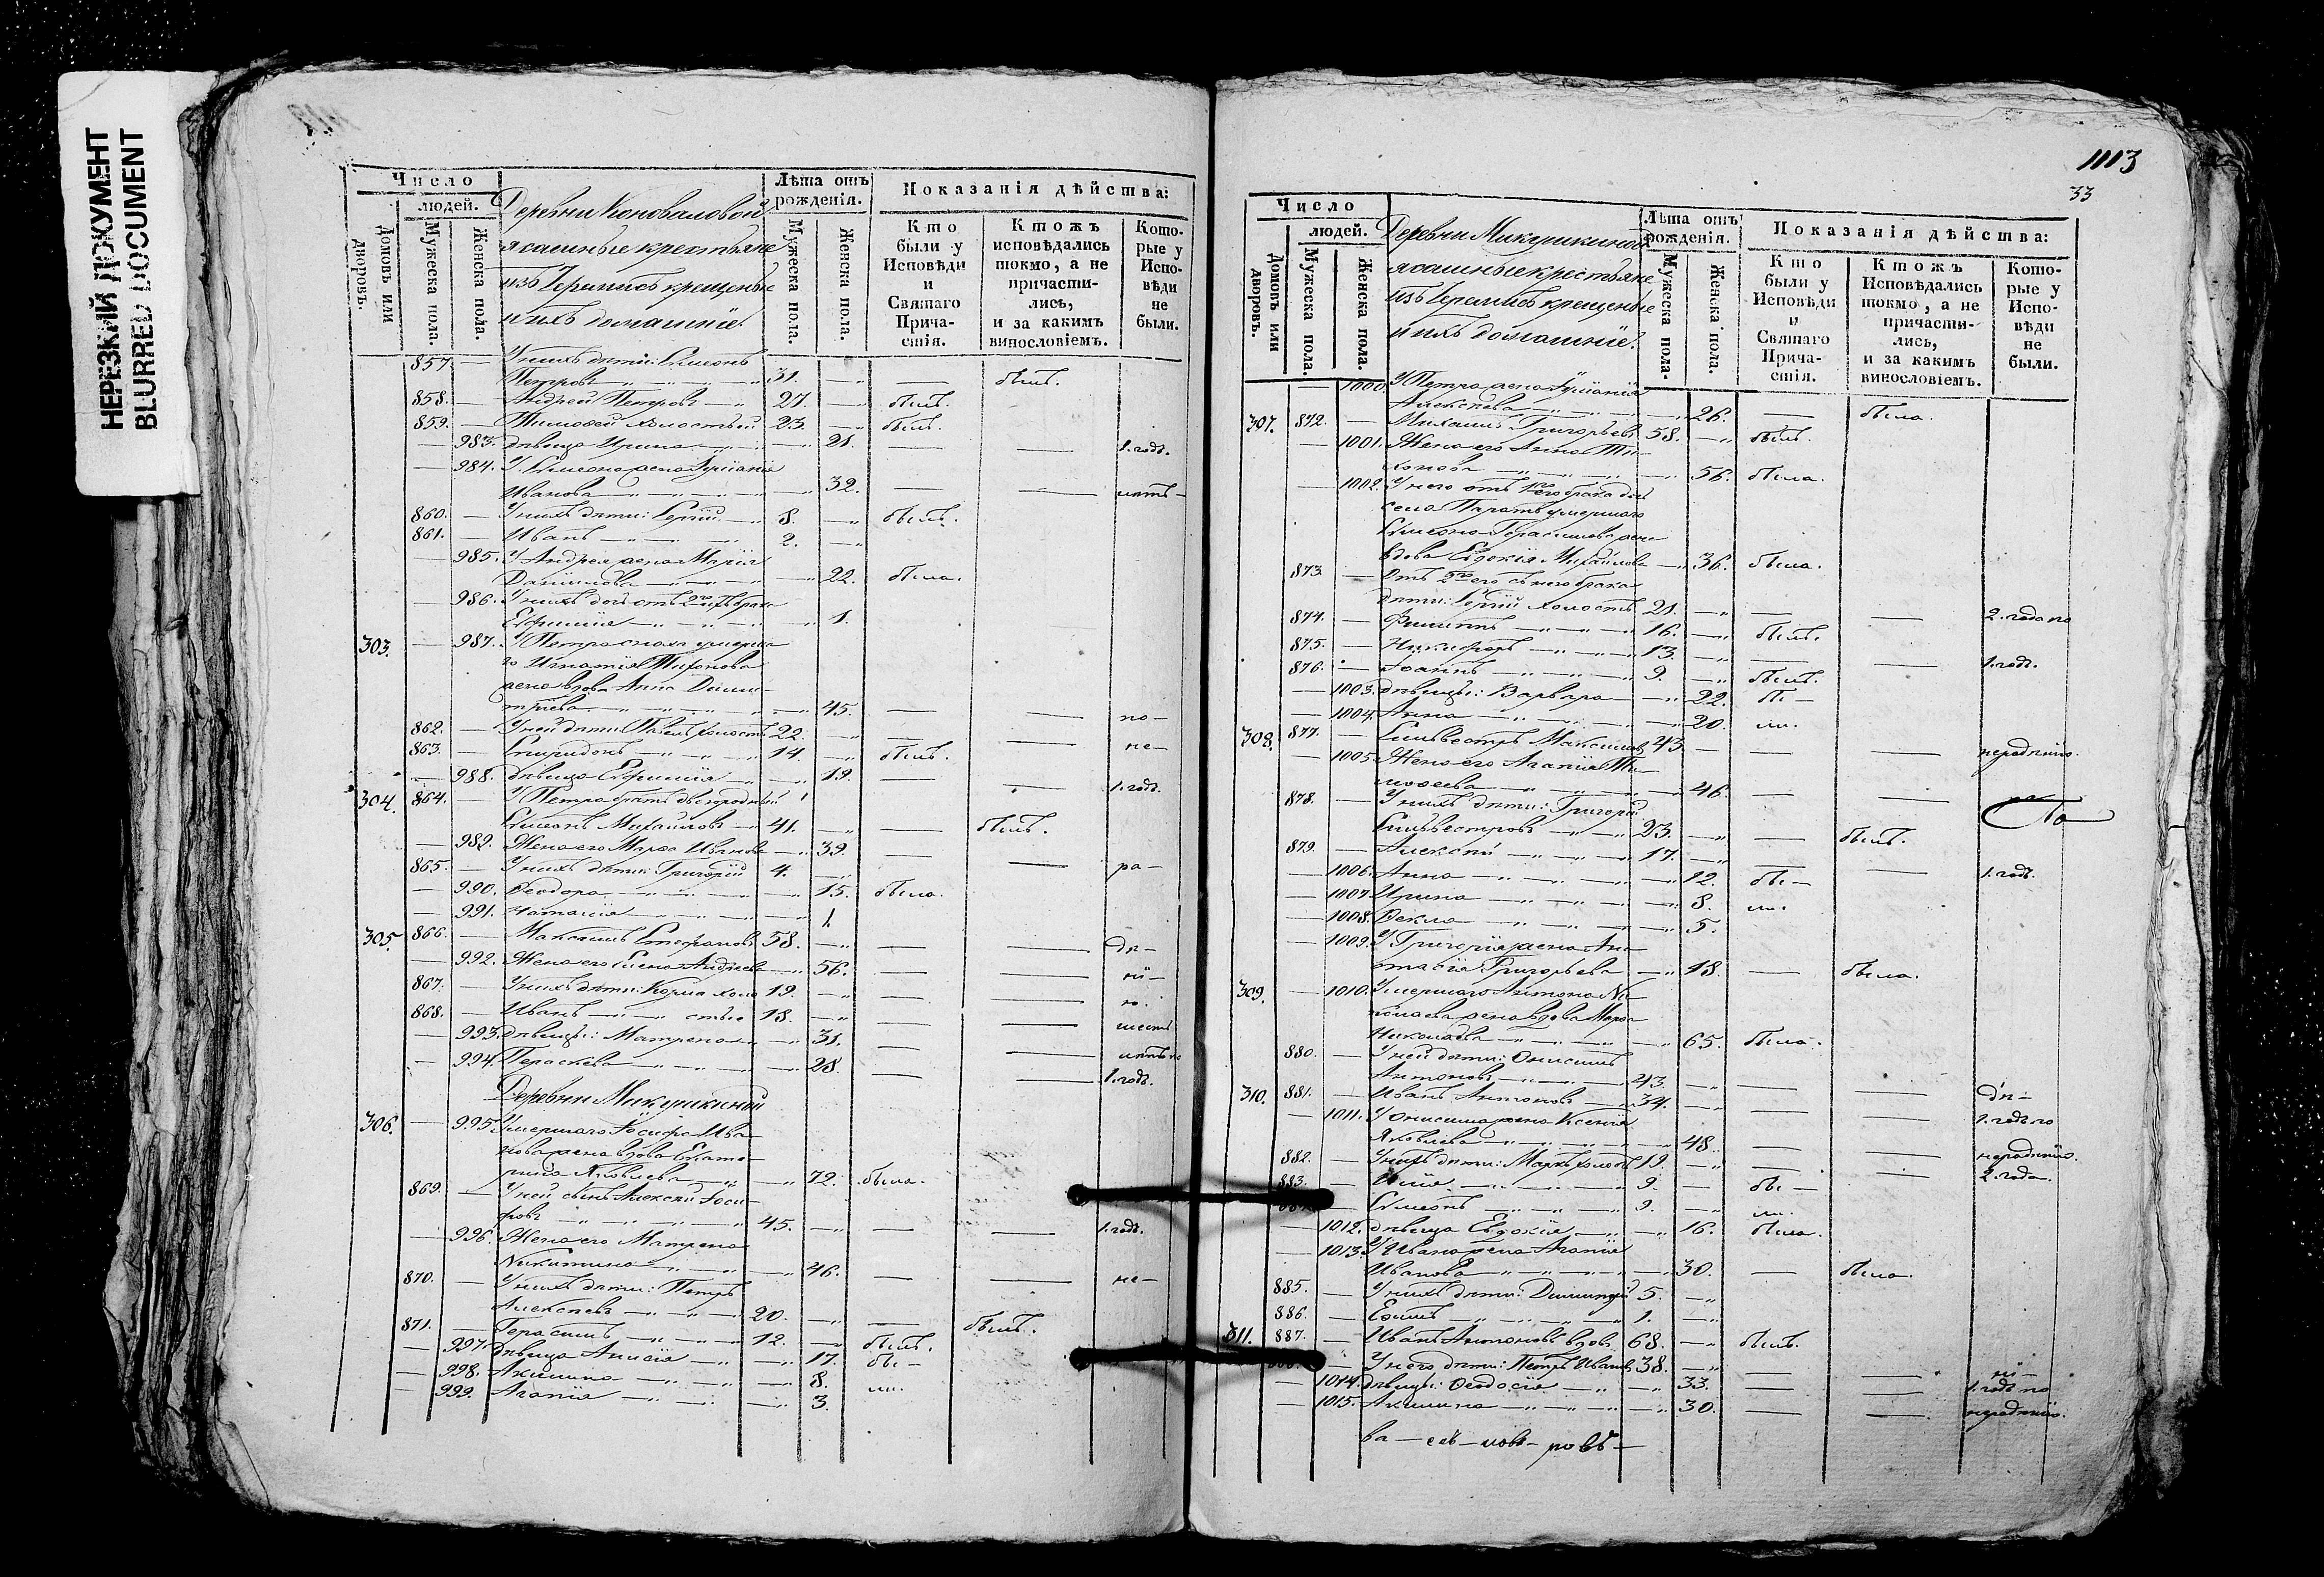 НЕРЕЗКИЙ ДОКУМЕНТ
BLURRED DOCUMENT
Число
людей.
Домовъ или дворовъ.
Мужеска пола.
Женска пола.
Деревни Коноваловой
ясашные крестьяне
изъ Черемисъ крещеные
и ихъ домашніе.
Лѣта отъ рожденія.
Мужеска пола.
Женска пола.
Показанія дѣйства:
Кто были у Исповѣди и Святаго Причастія.
Кто жъ исповѣдались токмо, а не причастились, и за какимъ винословіемъ.
Которые у Исповѣди не были.
857. — У нихъ дѣти: Симеонъ
Петровъ 31. — былъ.
858. — Андрей Петровъ 27. — былъ.
859. — Тимофей холостый 23. — былъ.
— 983. Дѣвица Ирина — 21. — — 1. годъ.
— 984. У Симеона жена Іуліанія
Иванова — 32. — —
860. — У нихъ дѣти: Сергій 8. — былъ.
861. — Иванъ 2. —
— 985. У Андрея жена Марія
Даніилова — 22. была.
— 986. У нихъ дочь отъ 2го ихъ брака
Евфимія — 1.
303. — 987. У Петра сноха умерша
го Игнатія Тихонова
жена вдова Анна Дими-
тріева — 45. — — по-
862. — У ней дѣти: Павелъ холостъ 22. — — — не-
863. — Спиридонъ 14. — былъ.
— 988. Дѣвица Евфимія — 19. — — 1. годъ.
304. 864. — У Петра братъ двоюродный
Симеонъ Михайловъ 41. — — былъ.
— 989. Жена его Марфа Иванова — 39. — — ра-
865. — У нихъ дѣти: Григорій 4. —
— 990. Феодора — 15. была.
— 991. Наталія — 1.
305. 866. — Максимъ Стефановъ 58. — — — дѣ-
— 992. Жена его Елена Андреева — 56. — — ні-
867. — У нихъ дѣти: Козма холо 19. — — — ю.
868. — Иванъ стые 18. — — — шесть
— 993. Дѣвицы: Матрена — 31. — —
— 994. Параскева — 28. — — 1. годъ.
Деревни Микушкиной
306. — 995. Умершаго Іосифа Ива-
нова жена вдова Екате-
рина Яковлева — 72. была.
869. — У ней сынъ Алексѣй Іоси-
фовъ 45. — — — 1. годъ.
— 996. Жена его Матрена
Никитина — 46. — — не-
870. — У нихъ дѣти: Петръ
Алексѣевъ 20. — — былъ.
871. — Герасимъ 12. — былъ.
— 997. Дѣвица Анисія — 17. бы-
— 998. Акилина — 8. ли.
— 999. Агапія — 3.
1113
33
Число
людей.
Домовъ или дворовъ.
Мужеска пола.
Женска пола.
Деревни Микушкиной
ясашные крестьяне
изъ Черемисъ крещеные
и ихъ домашніе.
Лѣта отъ рожденія.
Мужеска пола.
Женска пола.
Показанія дѣйства:
Кто были у Исповѣди и Святаго Причастія.
Кто жъ Исповѣдались токмо, а не причастились, и за какимъ винословіемъ.
Которые у Исповѣди не были.
— 1000. У Петра жена Іуліанія
Алексѣева — 26. — была.
307. 872. — Михаилъ Григорьевъ 58. — былъ.
— 1001. Жена его Анна Ти-
хонова — 56. была.
— 1002. У него отъ 1го его брака дочь
села умершаго
Симеона Герасимова жена
вдова Евдокія Михайлова — 36. была.
873. — Отъ 2го его съ нею брака
дѣти: Сергій холостъ 21. — — — 2. года по
874. — Филиппъ 16. — былъ.
875. — Никифоръ 13. — — — 1. годъ.
876. — Іоаннъ 9. — былъ.
— 1003. Дѣвицы: Варвара — 22. бы-
— 1004. Анна — 20. ли.
308. 877. — Сильвестръ Максимовъ 43. — — — нерадѣнію.
— 1005. Жена его Агапія Ти-
мофеева — 46. — —
878. — У нихъ дѣти: Григорій
Сильвестровъ 23. — — былъ. По
879. — Алексѣй 17. — — — 1. годъ.
— 1006. Анна — 12. бы-
— 1007. Ирина — 8. ли.
— 1008. Фекла — 5.
— 1009. У Григорія жена Ана-
стасія Григорьева — 18. — была.
309. — 1010. Умершаго Антона Ни-
колаева жена вдова Марфа
Николаева — 65. была.
880. — У ней дѣти: Онисимъ
Антоновъ 43. — — — дѣ-
310. 881. — Иванъ Антоновъ 34. — — — 1. годъ по
— 1011. У Онисима жена Ксенія
Яковлева — 48. — — нерадѣнію.
882. — У нихъ дѣти: Маркъ холостъ 19. — — — 2. года.
883. — Илія 9. — бы-
884. — Симеонъ 9. — ли.
— 1012. Дѣвица Евдокія — 16. была.
— 1013. У Ивана жена Агапія
Иванова — 30. — была.
885. — У нихъ дѣти: Димитрій 5. —
886. — Ефимъ 1. —
311. 887. — Иванъ Антоновъ вдовъ 68. — былъ.
888. — У него дѣти: Петръ Ивановъ 38. — — — ні-
— 1014. Дѣвицы: Феодосія — 33. — — 1. годъ по
— 1015. Акилина — 30. — — нерадѣнію.